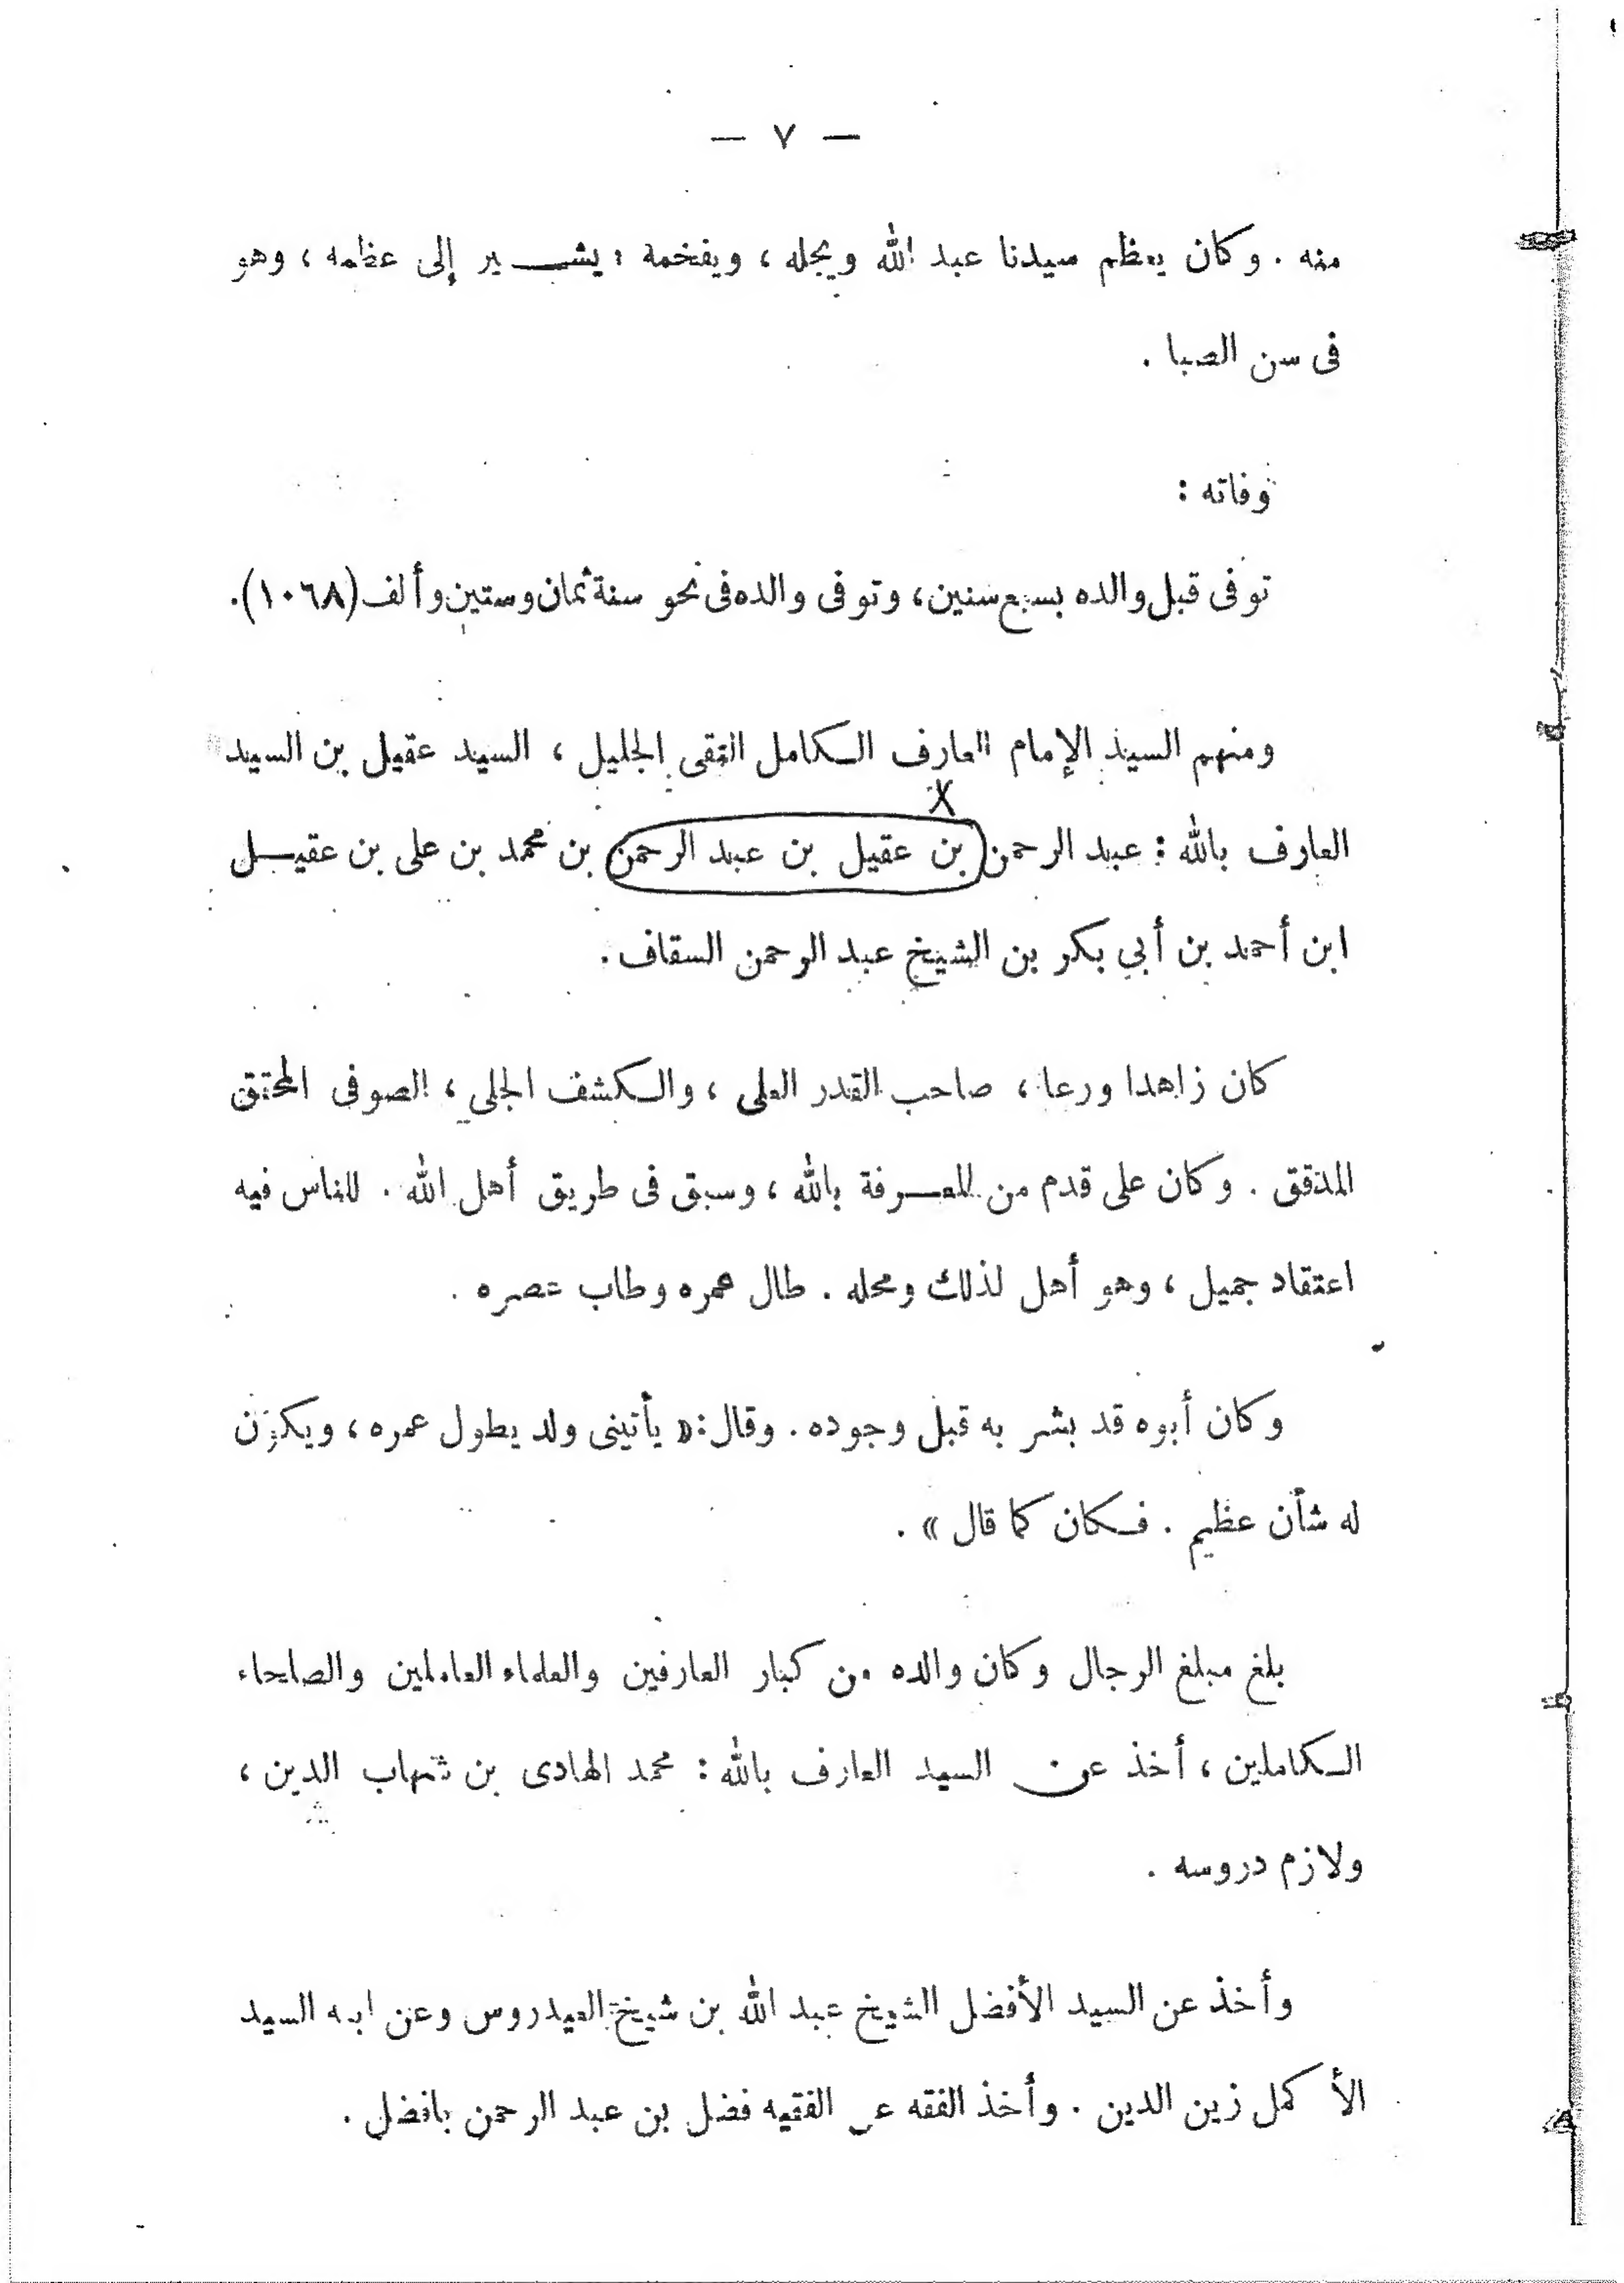 — ٧ —
منه . وكان يعظم سيدنا عبد الله ويجله ، ويفخمه ؛ يشير إلى عظمه ، وهو
فى سن الصبا .
وفاته :
توفى قبل والده بسبع سنين ، وتوفى والده فى نحو سنة ثمان وستين وألف (١٠٦٨) .
ومنهم السيد الإمام العارف الكامل التقى الجليل ، السيد عقيل بن السيد
X
العارف بالله : عبد الرحمن بن عقيل بن عبد الرحمن بن محمد بن على بن عقيل
ابن أحمد بن أبي بكر بن الشيخ عبد الرحمن السقاف .
كان زاهدا ورعا ، صاحب القدر العلى ، والكشف الجلي ، الصوفى المحقق
المدقق . وكان على قدم من المعرفة بالله ، وسبق فى طريق أهل الله . للناس فيه
اعتقاد جميل ، وهو أهل لذلك ومحله . طال عمره وطاب عصره .
وكان أبوه قد بشر به قبل وجوده . وقال : « يأتينى ولد يطول عمره ، ويكون
له شأن عظيم . فكان كما قال » .
بلغ مبلغ الرجال وكان والده من كبار العارفين والعلماء العاملين والصلحاء
الكاملين ، أخذ عن السيد العارف بالله : محمد الهادى بن شهاب الدين ،
ولازم دروسه .
وأخذ عن السيد الأفضل الشيخ عبد الله بن شيخ العيدروس وعن ابنه السيد
الأكمل زين الدين . وأخذ الفقه عن الفقيه فضل بن عبد الرحمن بافضل .